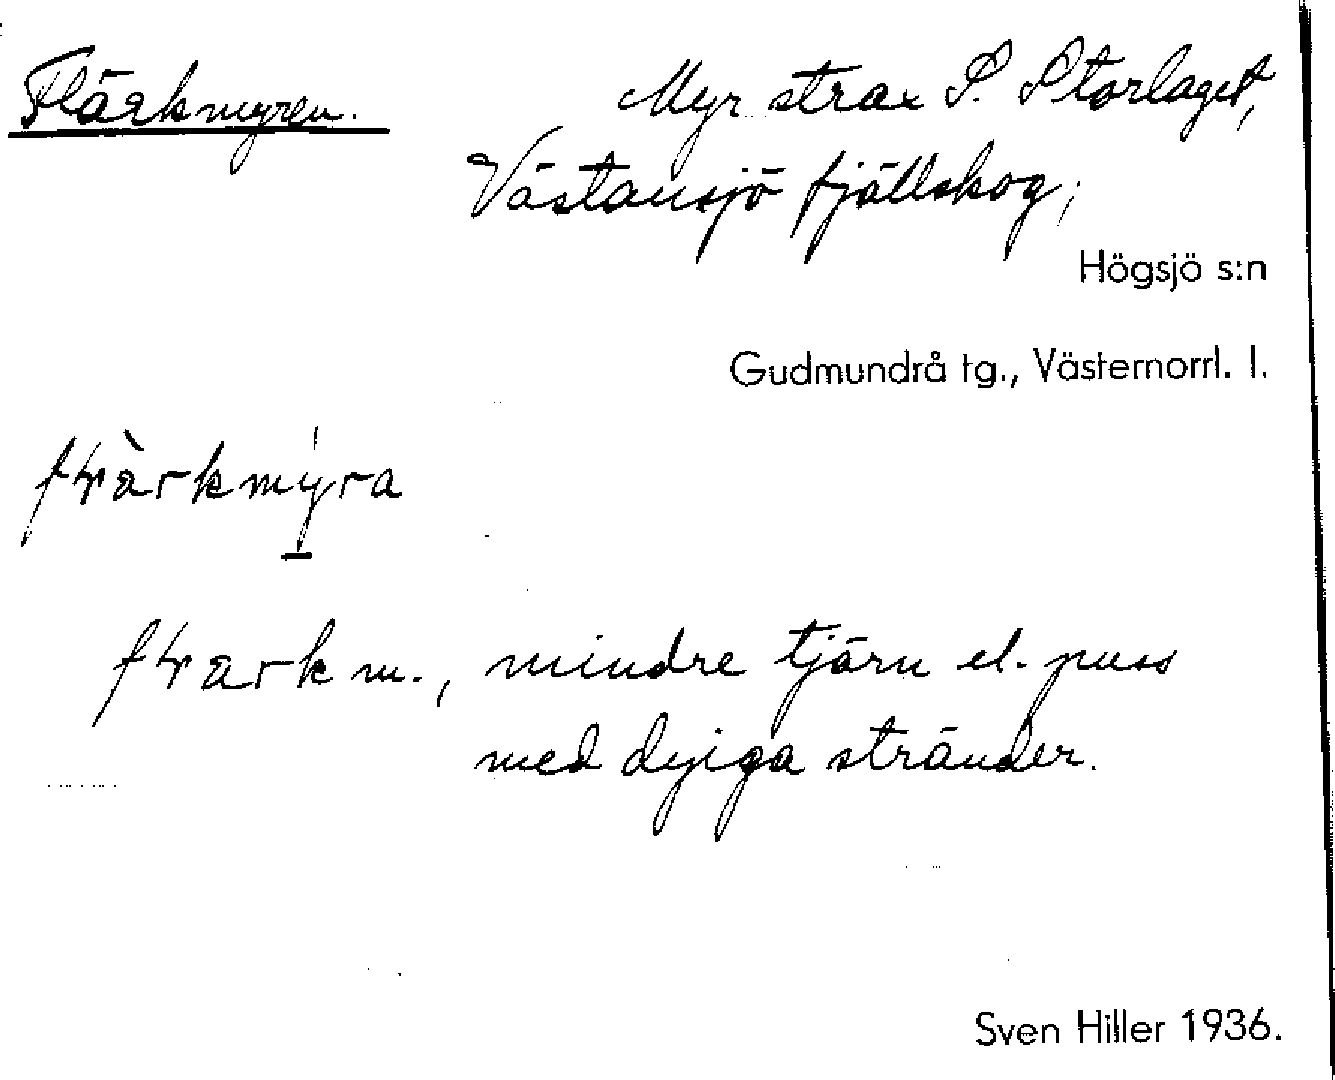 Flärkmyren.
Myr strax S. Storlaget,
Västansjö fjällskog;
Högsjö s:n
Gudmundrå tg., Västernorrl. l.
mindre tjärn el. puss
med dyiga stränder.
Sven Hiller 1936.